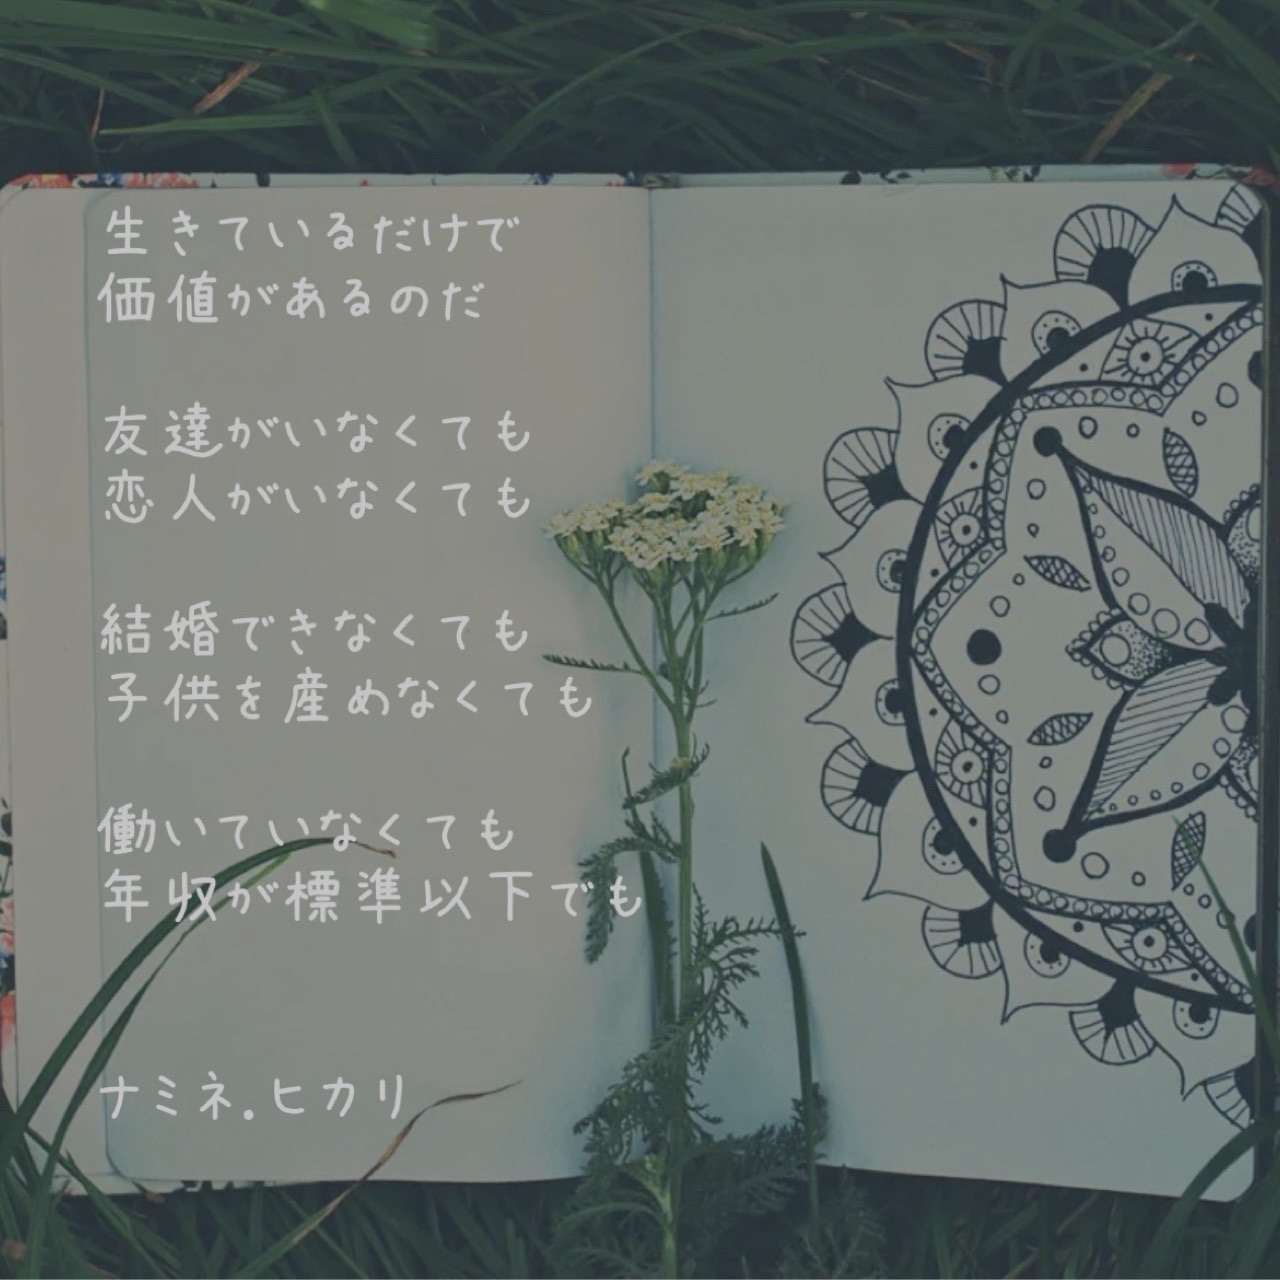 生きているだけで
価値があるのだ
友達がいなくても
恋人がいなくても
結婚できなくても
子供を産めなくても
働いていなくても
年収が標準以下でも
ナミネ.ヒカリ